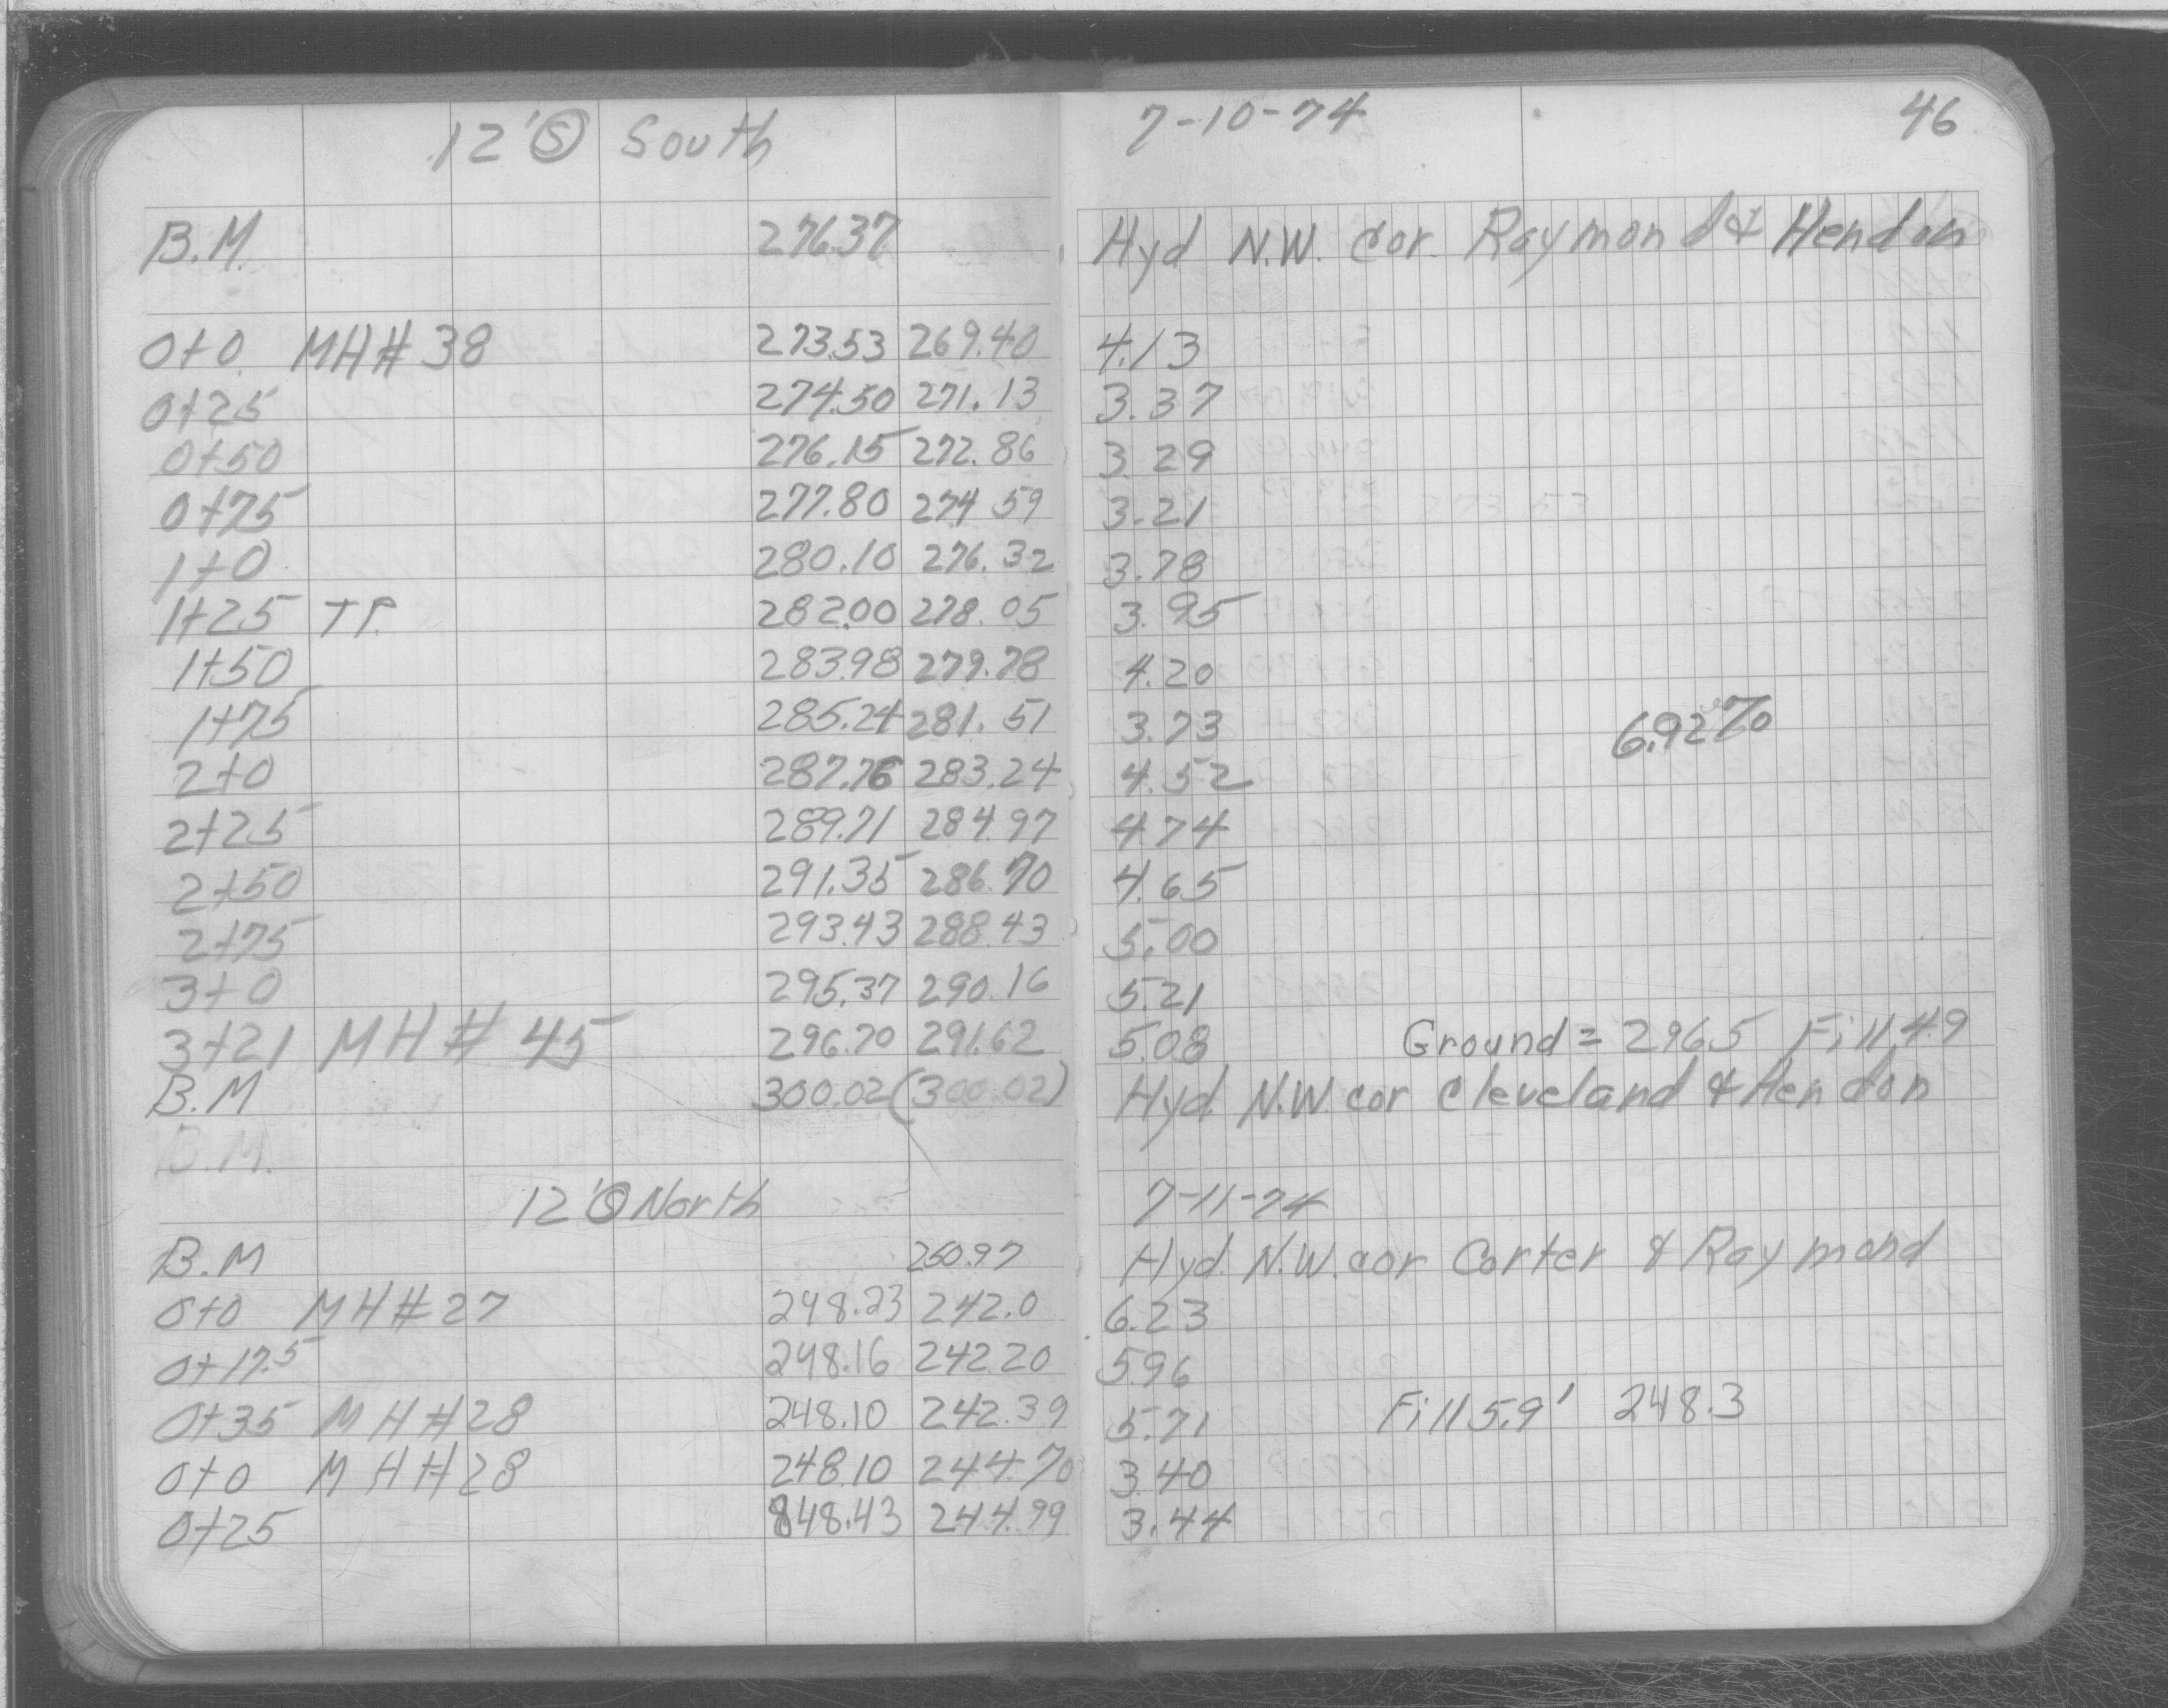 12' Ⓢ South 7-10-74 46
B.M. 276.37 Hyd N.W. cor. Raymond & Hendon
0+0 MH# 38 273.53 269.40 4.13
0+25 274.50 271.13 3.37
0+50 276.15 272.86 3.29
0+75 277.80 274.59 3.21
1+0 280.10 276.32 3.78
1+25 T.P. 282.00 278.05 3.95
1+50 283.98 279.78 4.20
1+75 285.24 281.51 3.73 6.92%
2+0 287.76 283.24 4.52
2+25 289.71 284.97 4.74
2+50 291.35 286.70 4.65
2+75 293.43 288.43 5.00
3+0 295.37 290.16 5.21
3+21 MH# 45 296.70 291.62 5.08 Ground = 296.5 Fill 4.9
B.M 300.02 (300.02) Hyd. N.W. cor Cleveland & Hendon
B.M.
12' Ⓢ North 7-11-74
B.M 250.97 Hyd. N.W. cor Carter & Raymond
0+0 MH# 27 248.23 242.0 6.23
0+17.5 248.16 242.20 5.96
0+35 MH#28 248.10 242.39 5.71 Fill 5.9' 248.3
0+0 MH#28 248.10 244.70 3.40
0+25 848.43 244.99 3.44